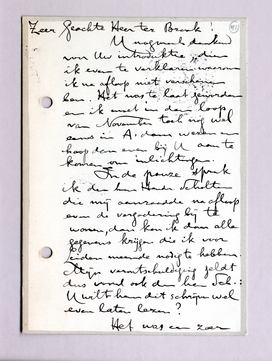 Zeer Geachte Heer ter Braak!
U nogmaals dankend
voor Uw introductie, dien
ik even te verklaren waarom
ik na afloop niet verschenen
ben. Het was te laat geworden
en ik moet in den loop
van November toch nog wel
eens in A. dam wezen en
hoop dan even bij U aan te
komen om inlichtingen.
In de pauze sprak
ik den heer
die mij aanraadde na afloop
even de vergadering bij te
wonen, dan kon ik daar alle
gegevens krijgen die ik voor
Leiden meende noodig te hebben.
Mijn verontschuldiging geldt
dus vooral ook den heer Sch.:
U wilt hem dit schrijven wel
even laten lezen?
Het was een zeer